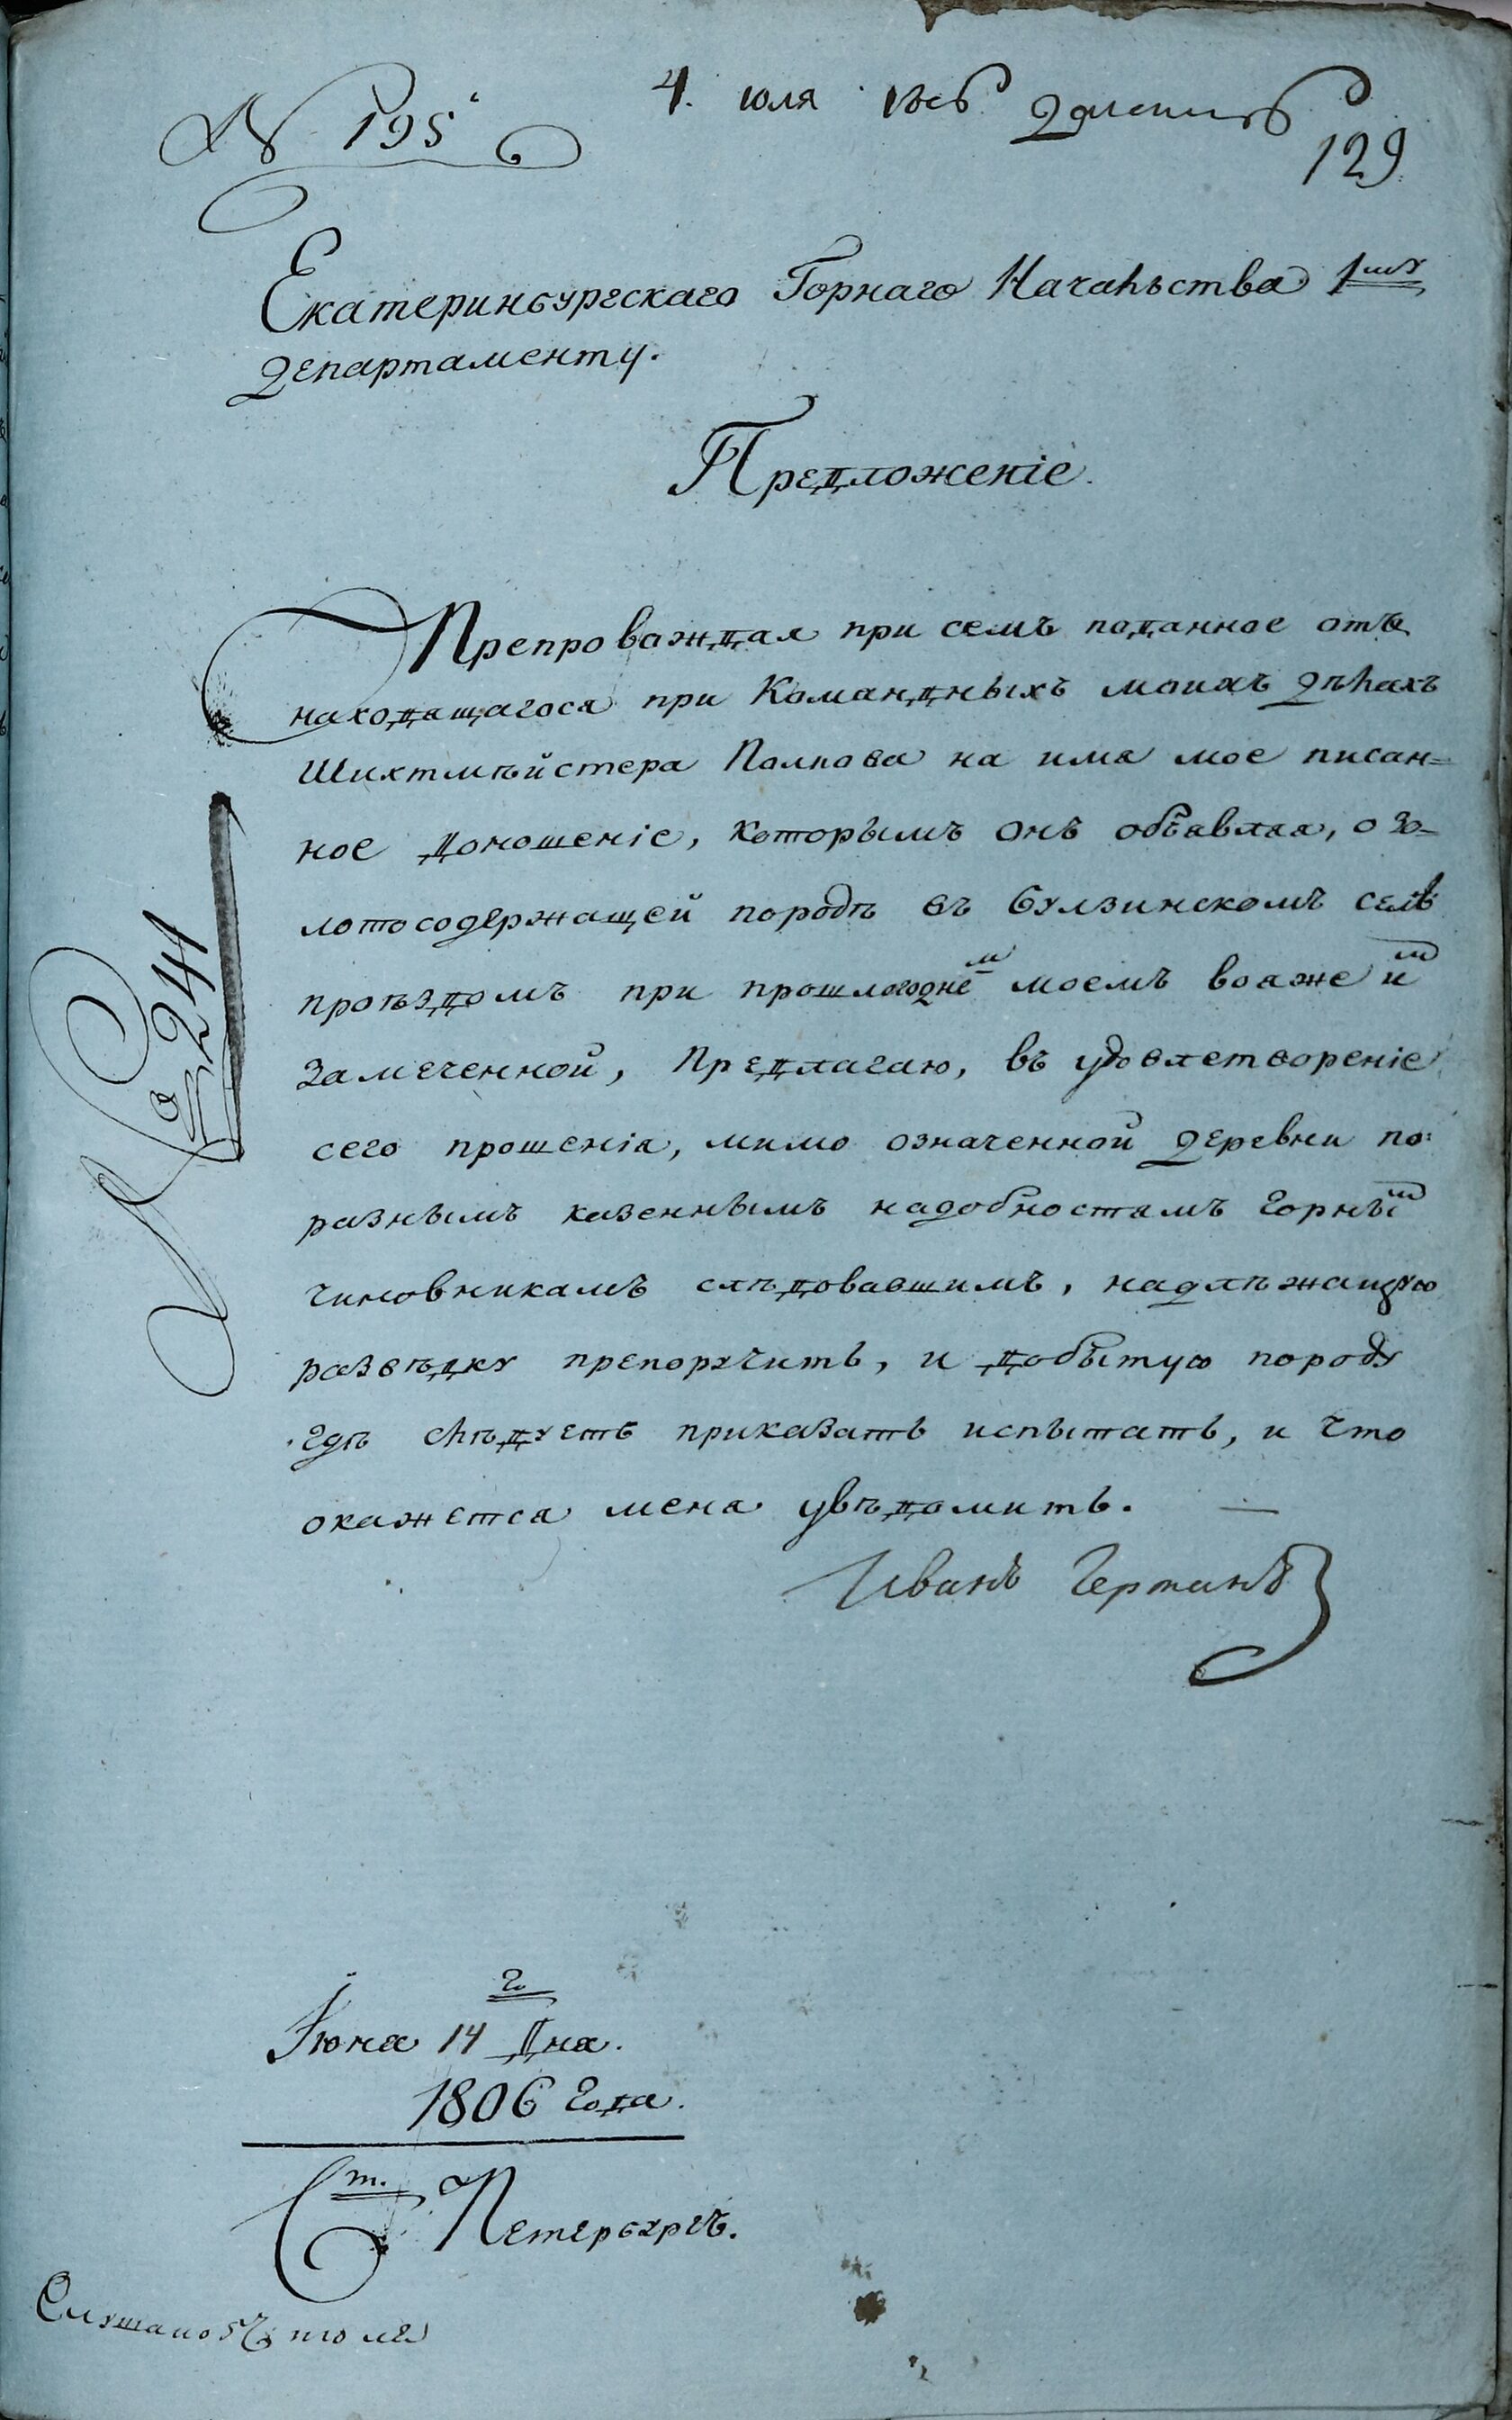 № 195
4. июля 1806
129.
Екатеринбургскаго Горнаго Начальства 1му
Департаменту.
Предложеніе.
Препровождая при семъ поданное отъ
находящагося при Командныхъ моихъ дѣлахъ
Шихтмѣйстера Попова на имя мое писан=
ное доношеніе, которымъ онъ объявляя, о зо-
лотосодержащей породѣ въ Булзинскомъ селѣ
проѣздомъ при прошлогоднем моемъ вояже им
замеченной, Предлагаю, въ удовлетвореніе
сего прошенія, мимо означенной деревни по
разнымъ казеннымъ надобностямъ горным
чиновникамъ слѣдовавшимъ, надлѣжащую
развѣдку препоручить, и добытую породу
гдѣ слѣдуетъ приказать испытать, и что
окажется меня увѣдомить. —
Иванъ Германъ
№ 241
Іюня 14го Дня.
1806 Года.
Ст. Петербургъ.
Слушано 5 июля